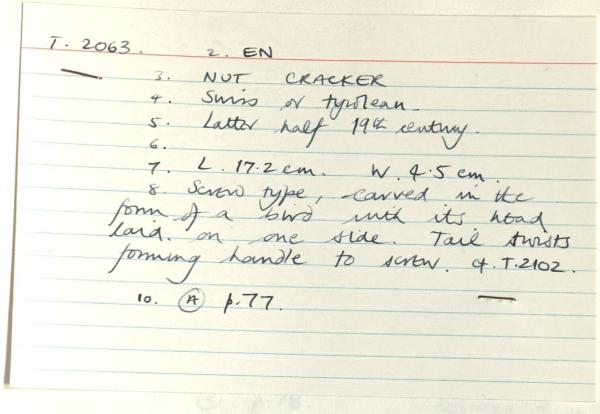 T. 2063. 2. EN
3. NUT CRACKER
4. Swiss or tyrolean.
5. Latter half 19th century.
6.
7. L. 17.2 cm. W. 4.5 cm.
8. Screw type, carved in the
form of a bird with its head
laid on one side. Tail twists
forming handle to screw. cf. T.2102.
10. (A) p.77.